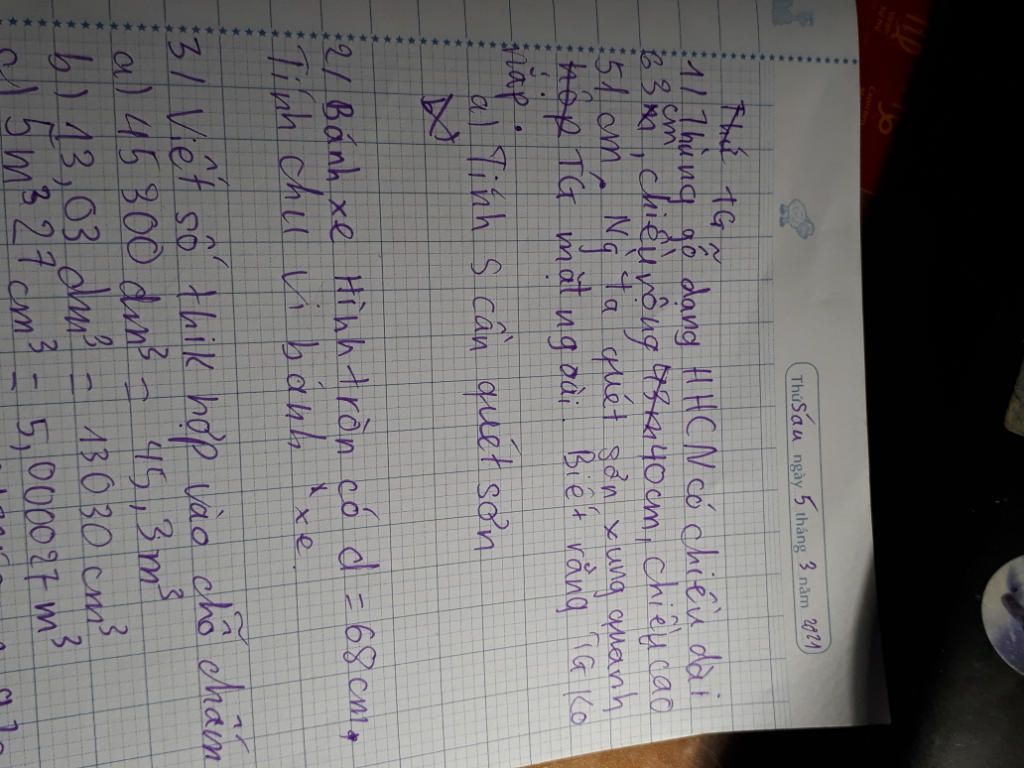 Thứ Sáu ngày 5 tháng 3 năm 2021
1/ Thùng gỗ dạng HHCN có chiều dài
cm, chiều rộng 40cm, chiều cao
51 cm. Ng ta quét sơn xung quanh
TG mặt ngoài. Biết rằng TG ko
nắp.
a) Tính S cần quét sơn
2/ Bánh xe Hình tròn có d = 68 cm.
Tính chu vi bánh xe.
3/ Viết số thik hợp vào chỗ chấm
a) 45 300 dm³ = 45,3 m³
b) 13,03 dm³ = 13030 cm³
c) 5 m³ 27 cm³ = 5,000027 m³